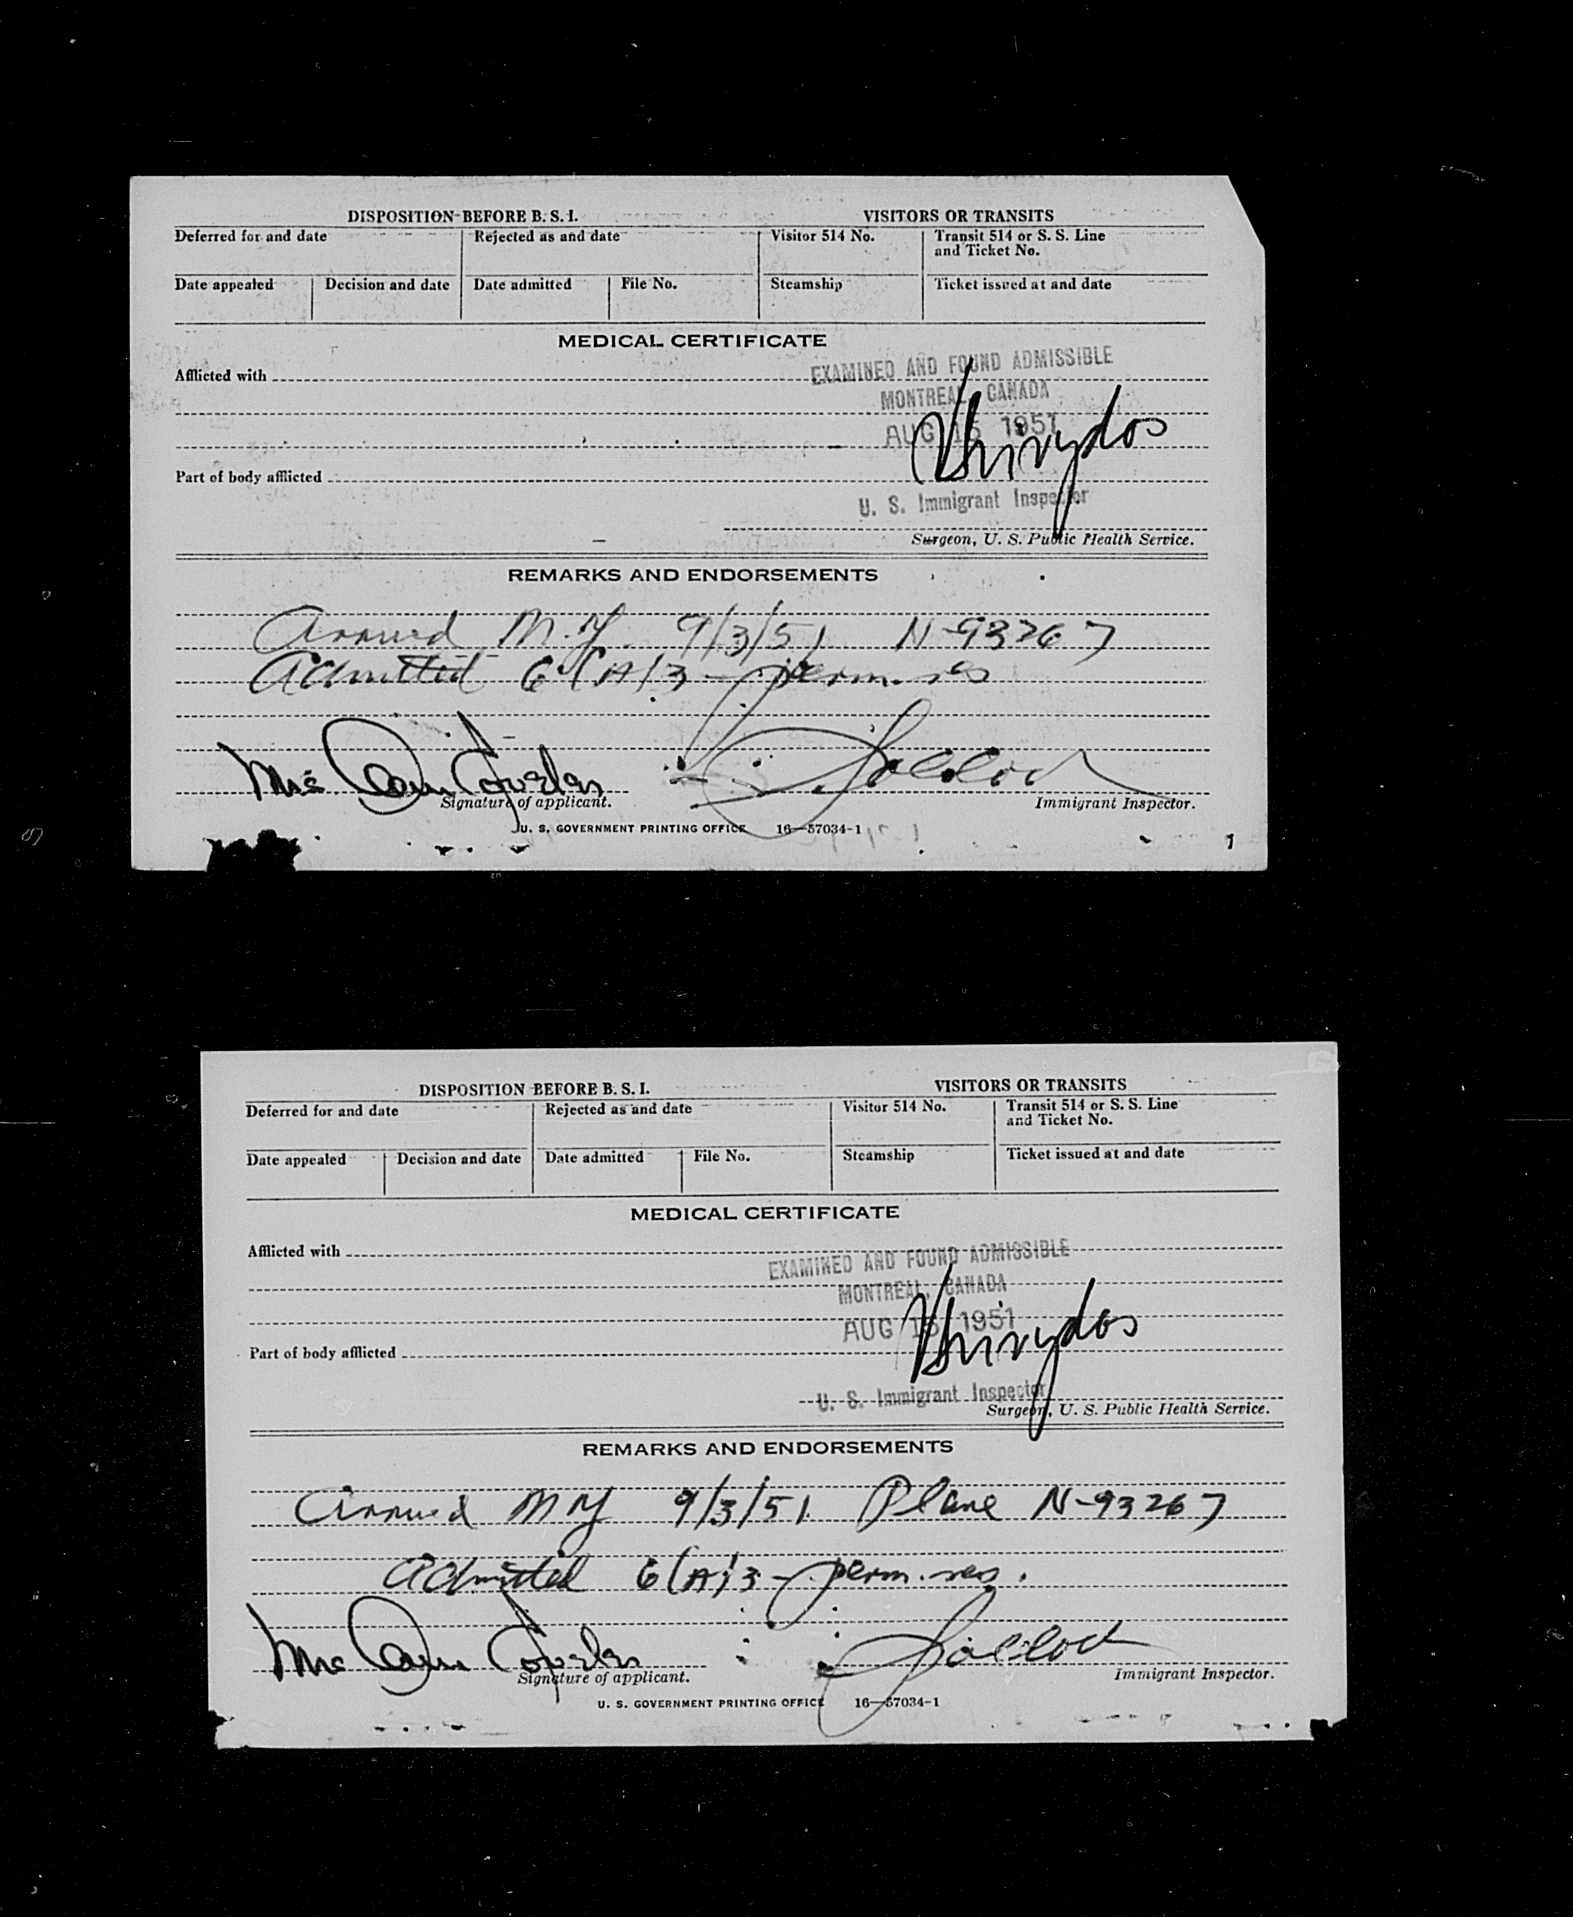 DISPOSITION BEFORE B. S. I. VISITORS OR TRANSITS
Deferred for and date Rejected as and date Visitor 514 No. Transit 514 or S. S. Line
and Ticket No.
Date appealed Decision and date Date admitted File No. Steamship Ticket issued at and date
MEDICAL CERTIFICATE
EXAMINED AND FOUND ADMISSIBLE
Afflicted with
MONTREAL, CANADA
AUG 15 1951
Part of body afflicted
U. S. Immigrant Inspector
Surgeon, U. S. Public Health Service.
REMARKS AND ENDORSEMENTS
Arrived N.Y. 9/3/51 N-93267
Admitted 6(A)3 - perm. res
Mrs
Signature of applicant. Immigrant Inspector.
U. S. GOVERNMENT PRINTING OFFICE 16—57034-1
DISPOSITION BEFORE B. S. I. VISITORS OR TRANSITS
Deferred for and date Rejected as and date Visitor 514 No. Transit 514 or S. S. Line
and Ticket No.
Date appealed Decision and date Date admitted File No. Steamship Ticket issued at and date
MEDICAL CERTIFICATE
Afflicted with
EXAMINED AND FOUND ADMISSIBLE
MONTREAL, CANADA
AUG 15 1951
Part of body afflicted
U. S. Immigrant Inspector
Surgeon, U. S. Public Health Service.
REMARKS AND ENDORSEMENTS
Arrived NY 9/3/51 Plane N-93267
Admitted 6(A)3 - perm. res.
Mrs
Signature of applicant. Immigrant Inspector.
U. S. GOVERNMENT PRINTING OFFICE 16—57034-1